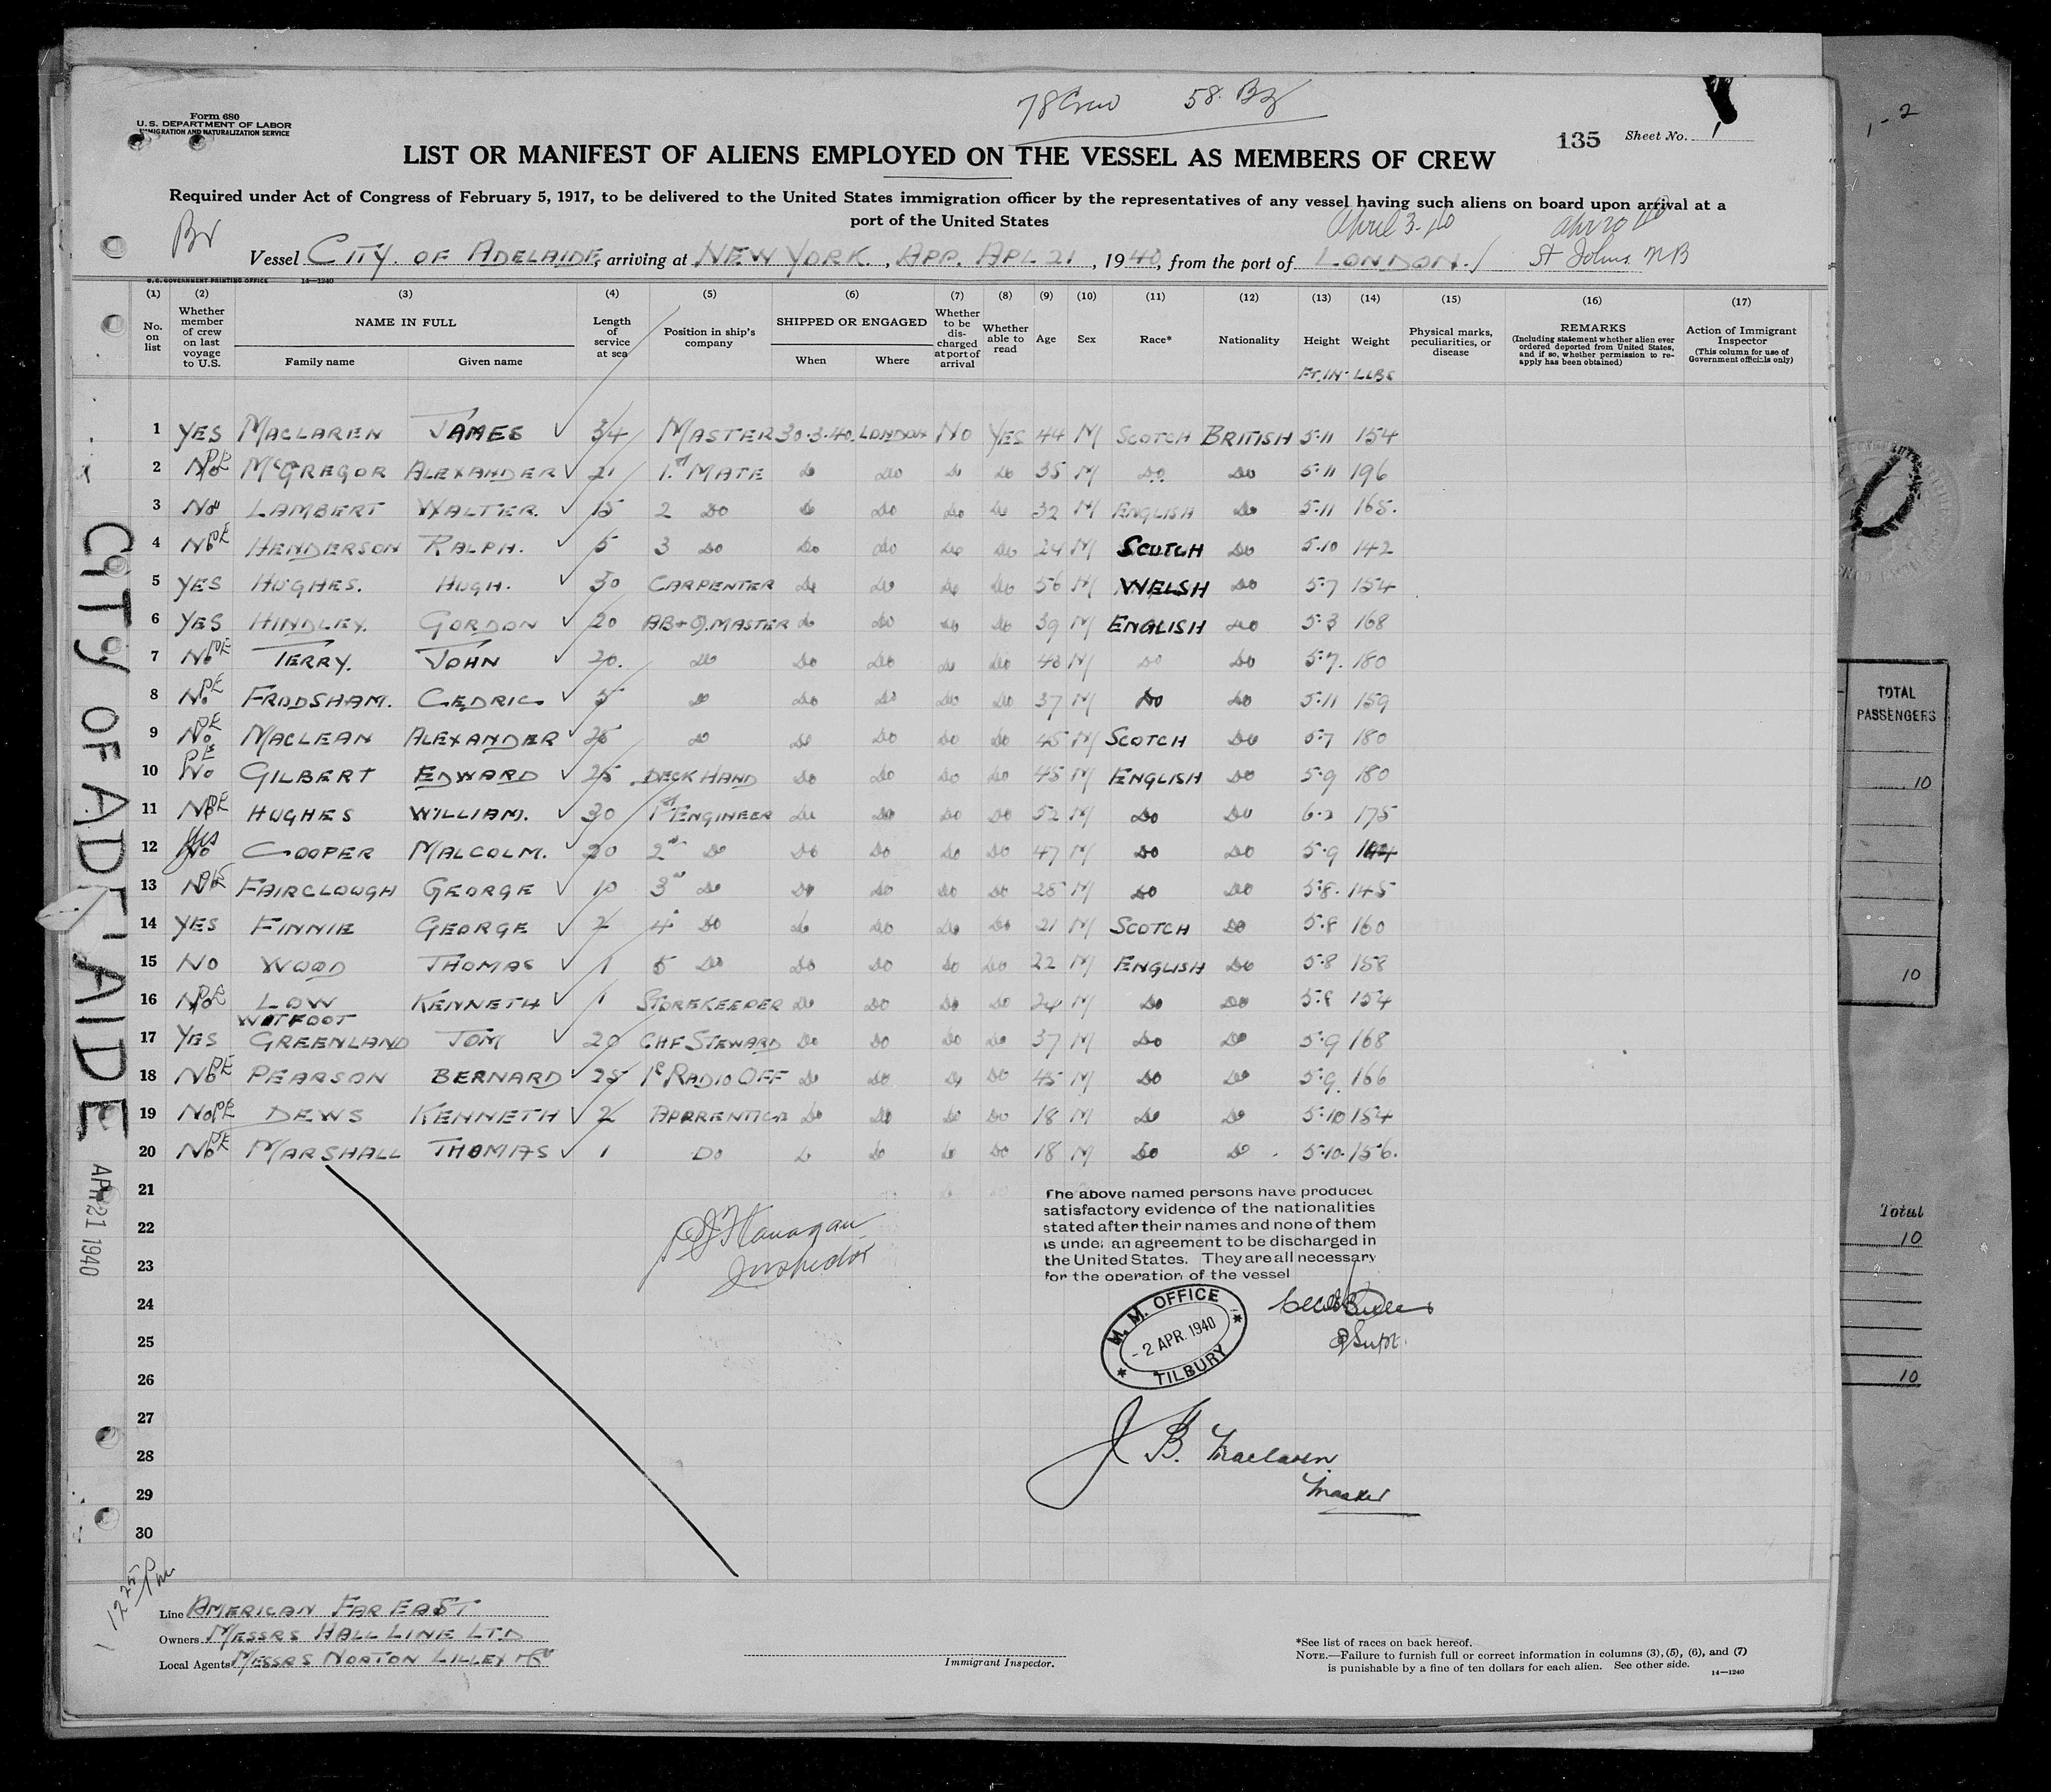 78 Crew 58. Bz
Form 680
U.S. DEPARTMENT OF LABOR
IMMIGRATION AND NATURALIZATION SERVICE
135 Sheet No. 1
LIST OR MANIFEST OF ALIENS EMPLOYED ON THE VESSEL AS MEMBERS OF CREW
Required under Act of Congress of February 5, 1917, to be delivered to the United States immigration officer by the representatives of any vessel having such aliens on board upon arrival at a
port of the United States
Br April 3-40 Apr 20 40
Vessel CITY. OF ADELAIDE, arriving at NEW YORK., APP. APL 21, 1940, from the port of LONDON. / St Johns NB
U.S. GOVERNMENT PRINTING OFFICE 14—1240
(1) (2) (3) (4) (5) (6) (7) (8) (9) (10) (11) (12) (13) (14) (15) (16) (17)
No. on list
Whether member of crew on last voyage to U.S.
NAME IN FULL
Family name Given name
Length of service at sea
Position in ship's company
SHIPPED OR ENGAGED
When Where
Whether to be discharged at port of arrival
Whether able to read
Age Sex Race* Nationality Height Weight
FT.IN. LLBS
Physical marks, peculiarities, or disease
REMARKS
(Including statement whether alien ever ordered deported from United States, and if so, whether permission to reapply has been obtained)
Action of Immigrant Inspector
(This column for use of Government officials only)
1 YES MACLAREN JAMES 34 MASTER 30.3.40. LONDON NO YES 44 M SCOTCH BRITISH 5.11 154
2 No PE McGREGOR ALEXANDER 21 1.st MATE do do do do 35 M DO. DO 5.11 196
3 No LAMBERT WALTER. 15 2 DO do DO do do 32 M ENGLISH do 5.11 165.
4 No PE HENDERSON RALPH. 5 3 DO do do do do 24 M SCOTCH DO 5.10 142
5 YES HUGHES. HUGH. 30 CARPENTER do do do do 56 M WELSH DO 5.7 154
6 YES HINDLEY. GORDON 20 AB+Q.MASTER do do do do 39 M ENGLISH do 5.3 168
7 No PE TERRY. JOHN 20. do DO do do do 48 M DO DO 5.7. 180
8 No PE FRODSHAM. CEDRIC 5 do do do do do 37 M DO do 5.11 159
9 No PE MACLEAN ALEXANDER 25 do do DO DO do 45 M SCOTCH DO 5.7 180
10 No PE GILBERT EDWARD 25 DECK HAND DO do DO do 45 M ENGLISH DO 5.9 180
11 No PE HUGHES WILLIAM. 30 1st ENGINEER do do DO DO 52 M DO DO 6.2 175
12 No yes COOPER MALCOLM. 20 2nd do DO DO do DO 47 M DO DO 5.9
13 No PE FAIRCLOUGH GEORGE 10 3rd do DO do DO DO 28 M DO DO 5.8. 145
14 YES FINNIE GEORGE 2 4 DO do DO do DO 21 M SCOTCH DO 5.8 160
15 NO WOOD THOMAS 1 5 do DO DO DO DO 22 M ENGLISH DO 5.8 158
16 No PE LOW KENNETH 1 STOREKEEPER do DO DO DO 24 M DO DO 5.8 154
WETFOOT
17 YES GREENLAND TOM 20 CHF STEWARD DO DO DO do 37 M DO DO 5.9 168
18 No PE PEARSON BERNARD 25 1st RADIO OFF do DO do DO 45 M DO do 5.9. 166
19 No PE DEWS KENNETH 2 APPRENTICE do do do DO 18 M do do 5.10 154
20 No PE MARSHALL THOMAS 1 DO do do do DO 18 M DO do 5.10. 156.
21
22
23
24
25
26
27
28
29
30
CITY OF ADELAIDE
APR 21 1940
Flanagan
Inspector
The above named persons have produced
satisfactory evidence of the nationalities
stated after their names and none of them
is under an agreement to be discharged in
the United States. They are all necessary
for the operation of the vessel
M. M. OFFICE
- 2 APR. 1940
TILBURY
Supt.
J B. Maclaren.
Master
12 25 Pm
Line AMERICAN FAR EAST
Owners MESSRS HALL LINE LTD
Local Agents MESSRS NORTON LILLEY
Immigrant Inspector.
*See list of races on back hereof.
NOTE.—Failure to furnish full or correct information in columns (3), (5), (6), and (7)
is punishable by a fine of ten dollars for each alien. See other side. 14—1240
1-2
TOTAL
PASSENGERS
10
10
Total
10
10